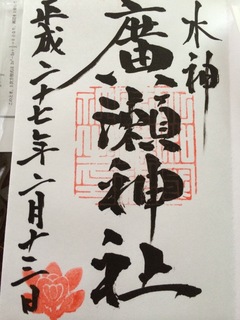 水神
廣瀬神社
平成二十七年六月十三日